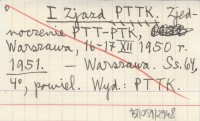 I Zjazd PTTK. Zjed-
noczenie PTT-PTK,
Warszawa, 16-17 XII 1950 r.
1951. — Warszawa. Ss. 64,
4°, powiel. Wyd.: PTTK.